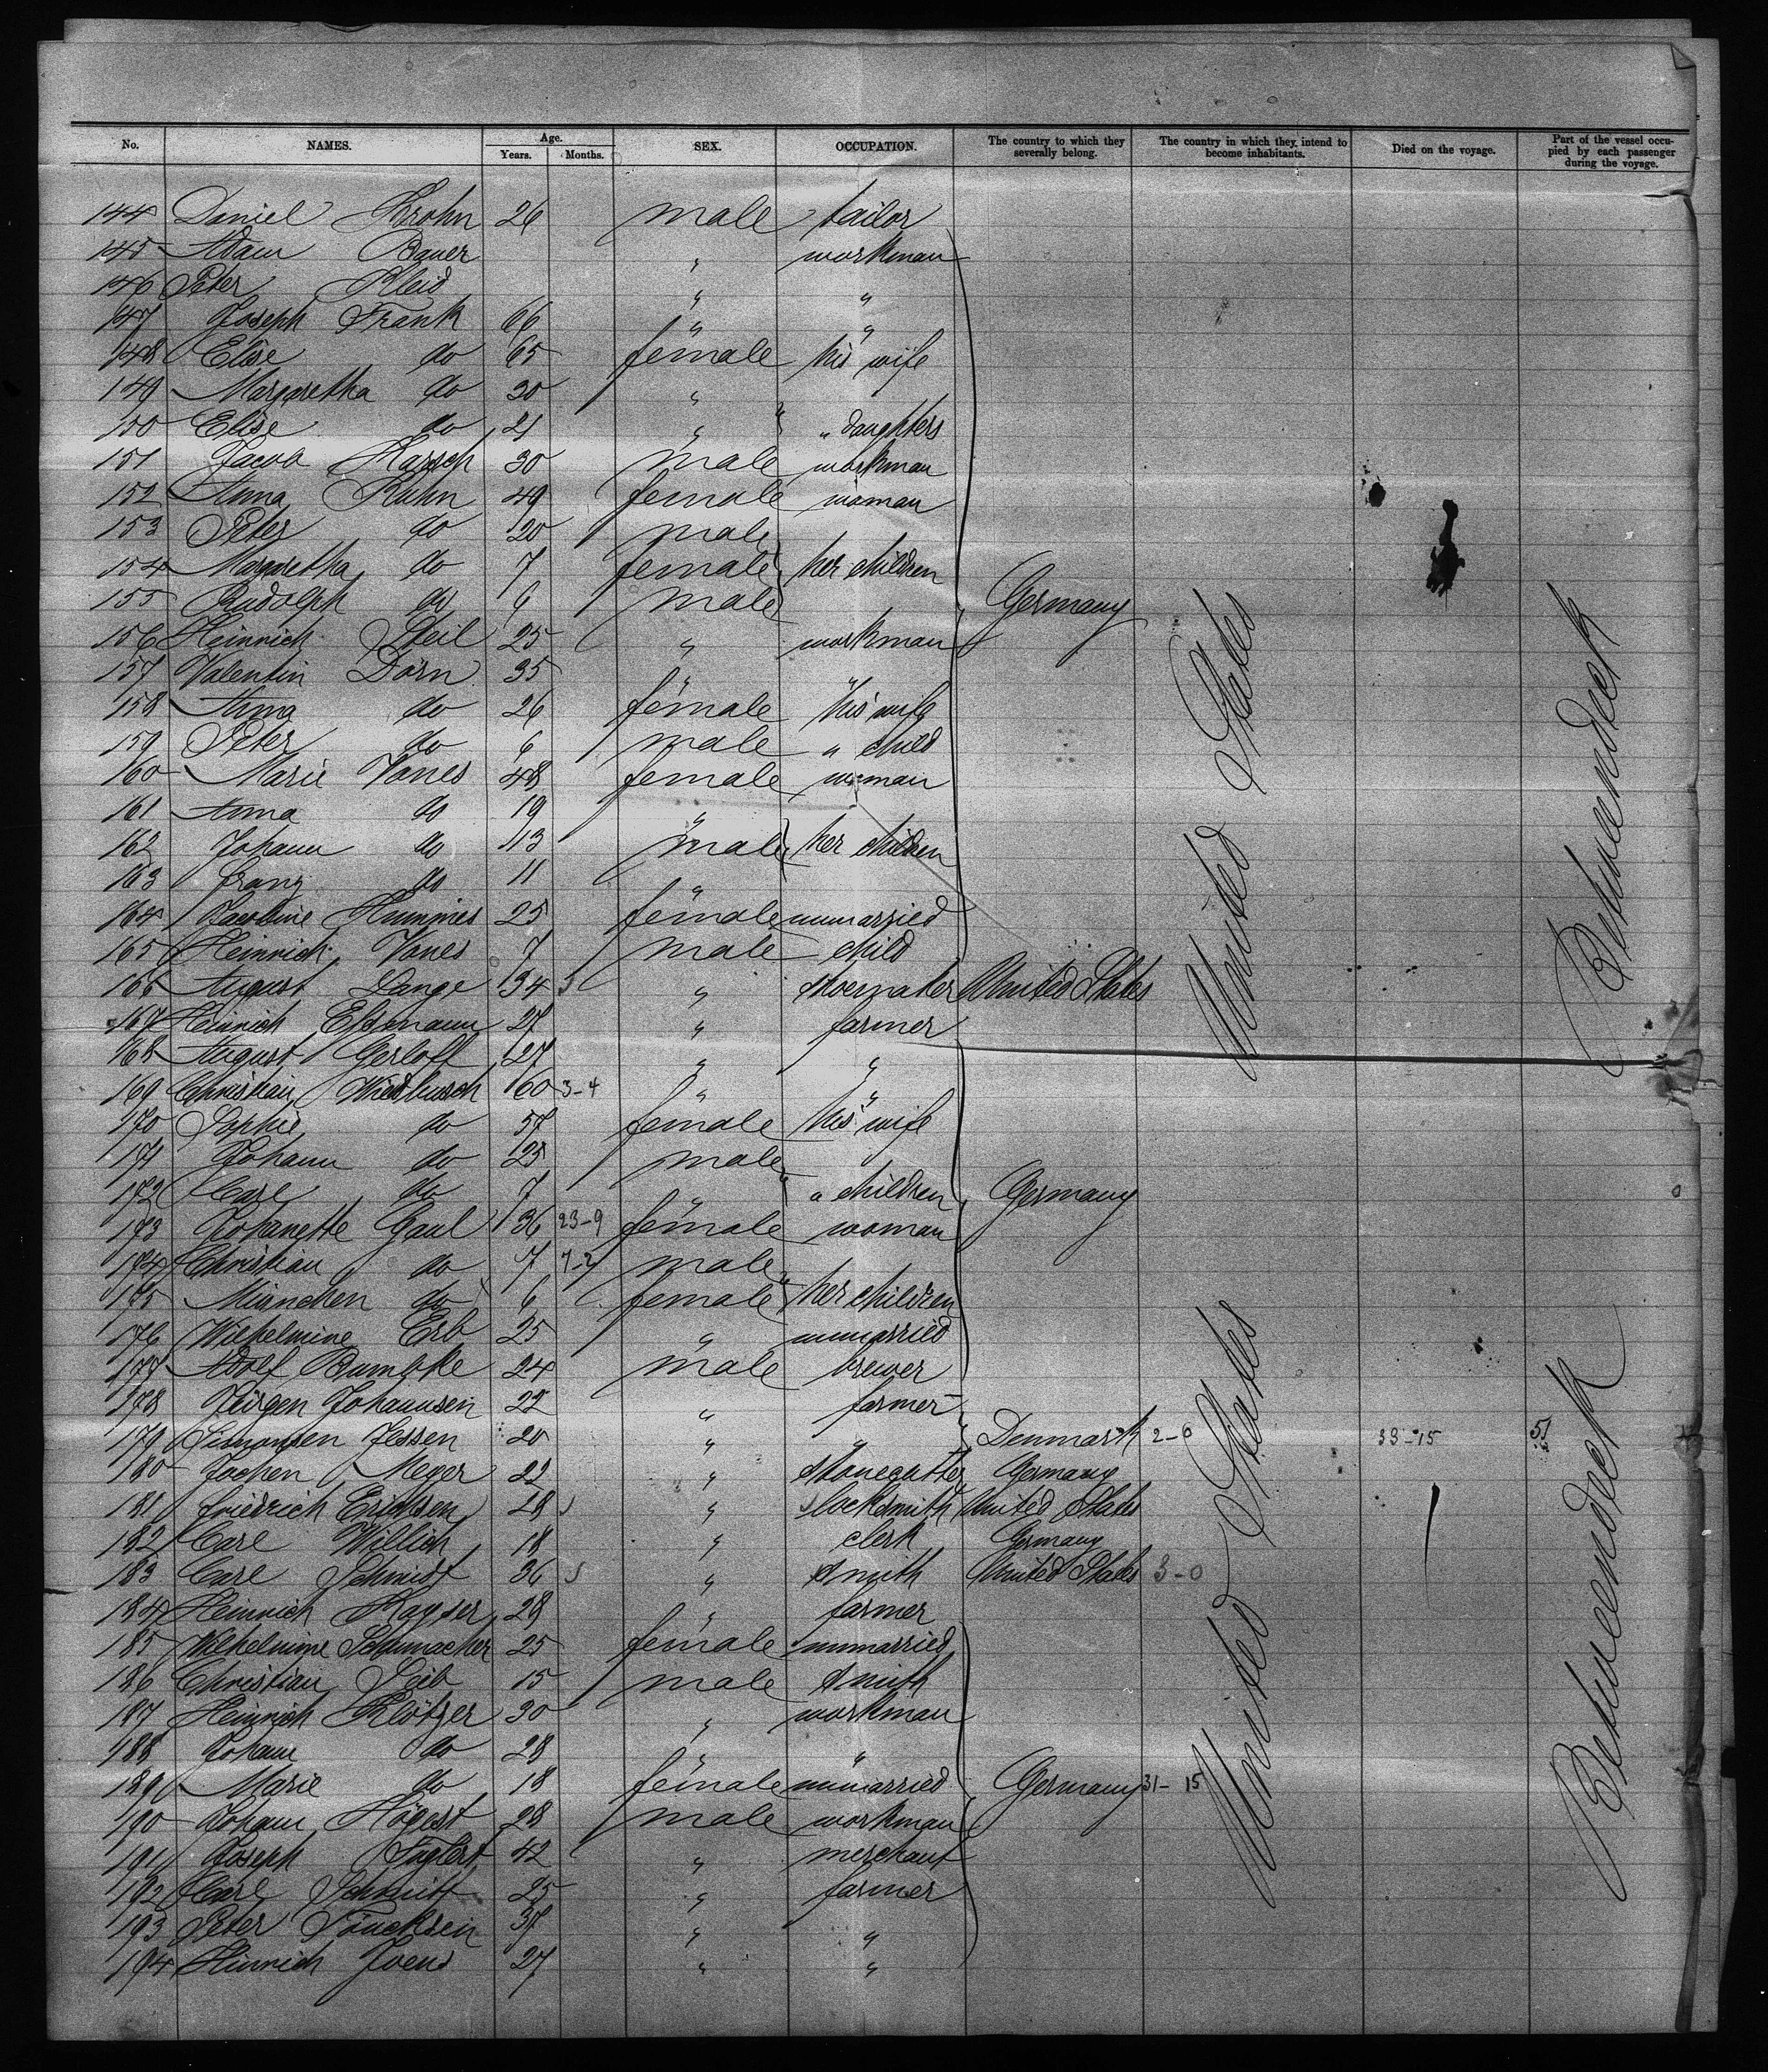 No. NAMES. Age. Years. Months. SEX. OCCUPATION. The country to which they severally belong. The country in which they intend to become inhabitants. Died on the voyage. Part of the vessel occupied by each passenger during the voyage.
144 Daniel Krohn 26 male tailor
145 Adam Bauer " workman
146 Peter Kleid " "
147 Joseph Frank 66 " "
148 Elise do 65 female his wife
149 Margaretha do 30 "
150 Elise do 21 " " daughters
151 Jacob Karsch 30 male workman
152 Anna Kuhn 49 female woman
153 Peter do 20 male
154 Margaretha do 7 female her children
155 Rudolph do 6 male Germany
156 Heinrich Pfeil 25 " workman
157 Valentin Dorn 35 " "
158 Anna do 26 female his wife
159 Peter do 6 male " child
160 Marie Vones 48 female woman
161 Anna do 19 "
162 Johann do 13 male her children
163 Franz do 11 "
164 Karoline Hummes 25 female unmarried
165 Heinrich Vones 7 male child
166 August Lange 34 " shoemaker United States
United States
Betweendeck
167 Heinrich Essmann 27 " farmer
168 August Gerloff 27 " "
169 Christian Wiesbusch 60 3-4 " "
170 Sophie do 57 female his wife
171 Johann do 25 male
172 Carl do 7 " " children Germany
173 Johanette Gaul 36 23-9 female woman
174 Christian do 7 7-2 male
175 Mianchen do 6 female her children
176 Wilhelmine Erb 25 " unmarried
177 Adolf Bumpke 24 male brewer
178 Jürgen Johannsen 22 " farmer
179 Simonsen Jessen 20 " " Denmark 2-0 33-15 51
180 Jochen Meyer 22 " stonecutter Germany
181 Friedrich Ericksen 28 " locksmith United States
182 Carl Willich 18 " clerk Germany
183 Carl Schmidt 36 " smith United States 3-0
184 Heinrich Kayser 28 " farmer
185 Wilhelmine Schumacher 25 female unmarried
186 Christian Leib 15 male smith
187 Heinrich Klötzer 30 " workman
188 Johann do 28 " "
189 Marie do 18 female unmarried Germany 31-15
190 Johann Högest 28 male workman
191 Joseph 42 " merchant
192 Carl Schmitt 25 " farmer
193 Peter 37 " "
194 Hinrich Joens 27 " "
United States
Betweendeck